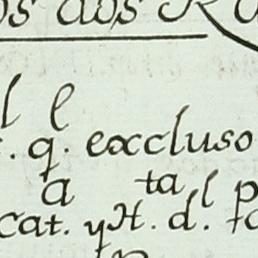 os dos R
l l
. q. excluso
a ta l p
cat. y H. d. fo